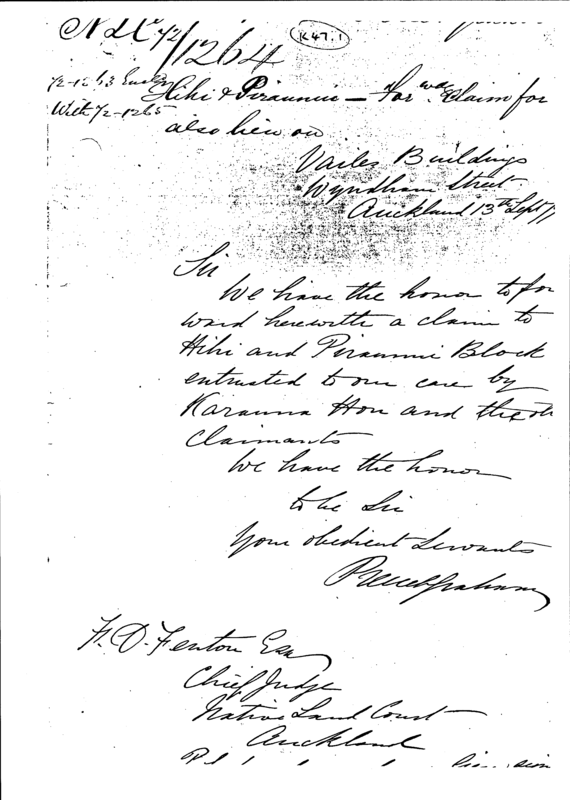 NLC 72/1264
K47.1
72-1263 Encl
With 72-1265
Hihi & Piraunui — Forwd. Claim for
also lien on
Vailes Buildings
Wyndham Street
Auckland 13th Sept 
Sir
We have the honor to for
ward herewith a claim to
Hihi and Piraunui Block
entrusted to our care by
Karauna Hou and the oth
Claimants
We have the honor
to be Sir
Your obedient Servants
F. D. Fenton Esq
Chief Judge
Native Land Court
Auckland